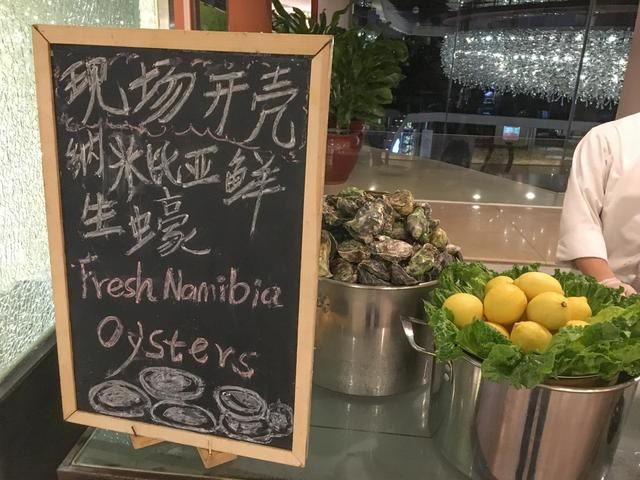 现场开壳
纳米比亚鲜
生蠔
Fresh Namibia
Oysters